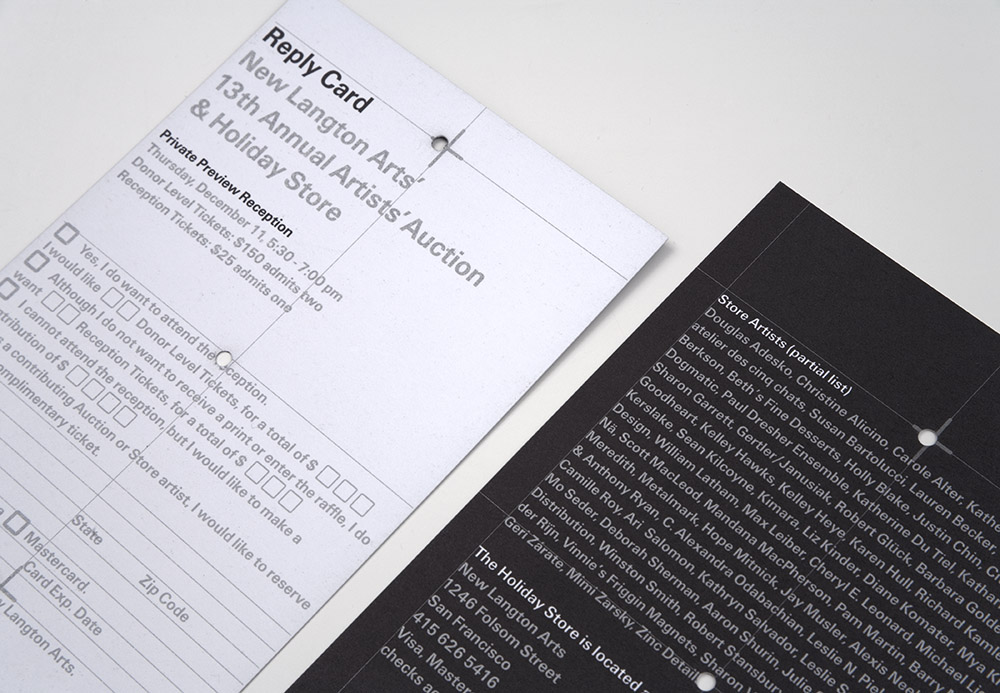 Reply Card
New Langton Arts'
13th Annual Artists' Auction
& Holiday Store
Private Preview Reception
Thursday, December 11, 5:30 - 7:00 pm
Donor Level Tickets: $150 admits two
Reception Tickets: $25 admits one
Yes, I do want to attend the reception.
I would like Donor Level Tickets, for a total of $
Although I do not want to receive a print or enter the raffle, I do
want Reception Tickets, for a total of $
I cannot attend the reception, but I would like to make a
of $
a contributing Auction or Store artist, I would like to reserve
ticket.
State
Zip Code
Mastercard.
Card Exp. Date
Langton Arts.
Store Artists (partial list)
Douglas Adesko, Christine Alicino, Carole Alter,
atelier des cinq chats, Susan Bartolucci, Lauren Becker,
Berkson, Beth's Fine Desserts, Holly Blake, Justin Chin,
Dogmatic, Paul Dresher Ensemble, Katherine Du Tiel,
Sharon Garrett, Gertler/Janusiak, Robert Glück, Barbara
Goodheart, Kelley Hawks, Kelley Heye, Karen Hull, Richard
Kerslake, Sean Kilcoyne, Krimara, Liz Kinder, Diane Komater,
Design, William Latham, Max Leiber, Cheryl E. Leonard, Michel
Na, Scott MacLeod, Mandana MacPherson, Pam Martin, Barry
Meredith, Metalmark, Hope Mitnick, Jay Musler, Alexis
& Anthony Ryan C, Alexandra Odabachian, Leslie N.
Camille Roy, Ari Salomon, Kathryn Salvador, Leslie S.
Mo Seder, Deborah Sherman, Aaron Shurin, Julie
Distribution, Winston Smith, Robert Stansbury
der Rijn, Vinnie's Friggin Magnets, Sharon
Geri Zarate, Mimi Zarsky Zinc Details
The Holiday Store is located
New Langton Arts
1246 Folsom Street
San Francisco
415 626 5416
Visa, Master
checks